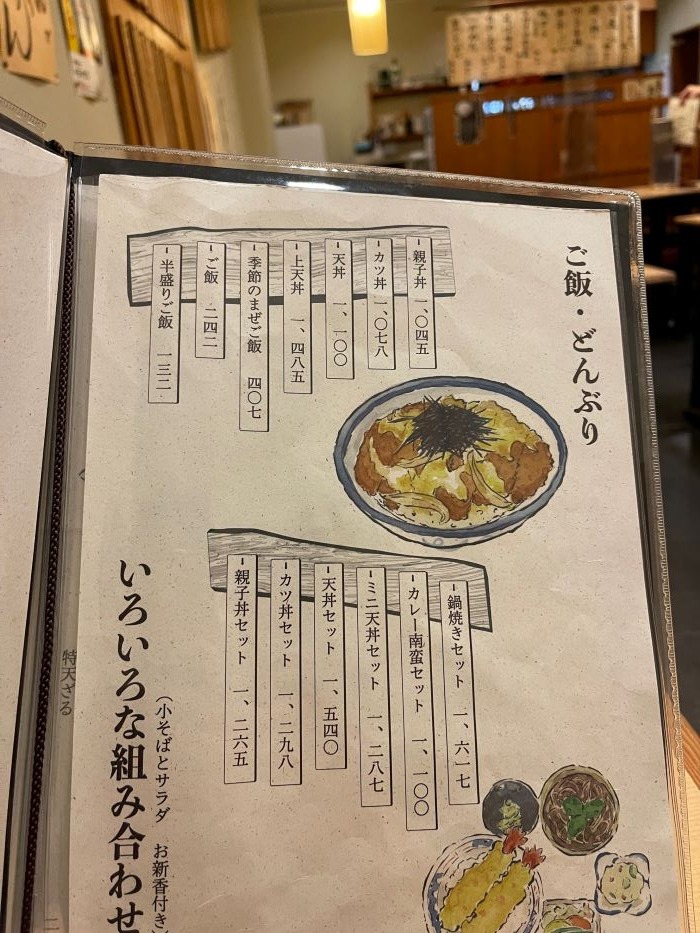 ご飯・どんぶり
親子丼 一、〇四五
カツ丼 一、〇七八
天丼 一、一〇〇
上天丼 一、四八五
季節のまぜご飯 四〇七
ご飯 二四二
半盛りご飯 一三二
鍋焼きセット 一、六一七
カレー南蛮セット 一、一〇〇
ミニ天丼セット 一、二八七
天丼セット 一、五四〇
カツ丼セット 一、二九八
親子丼セット 一、二六五
(小そばとサラダ お新香付き
いろいろな組み合わせ
特天ざる